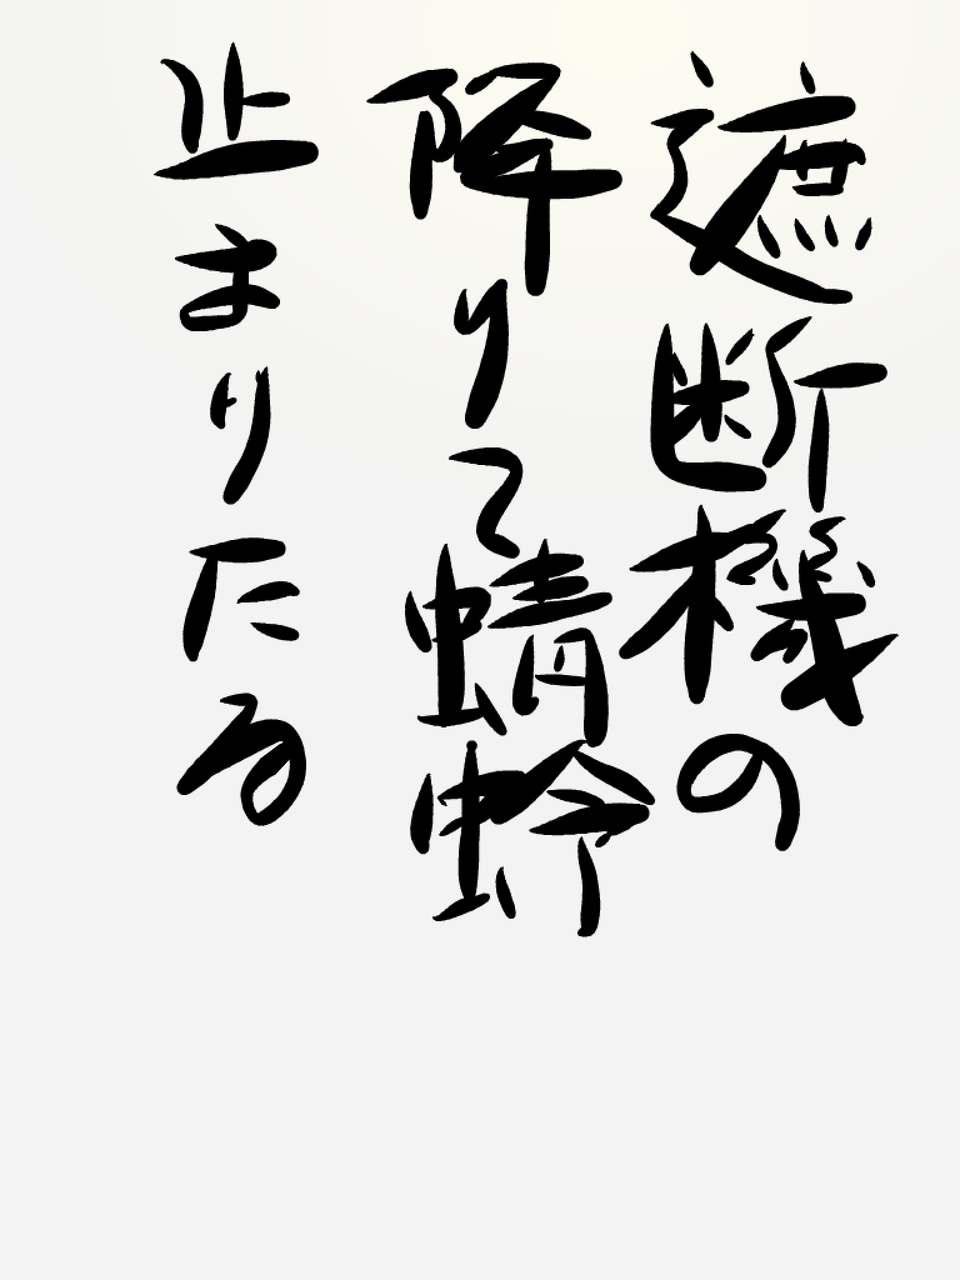 遮断機の
降りて蜻蛉
止まりたる